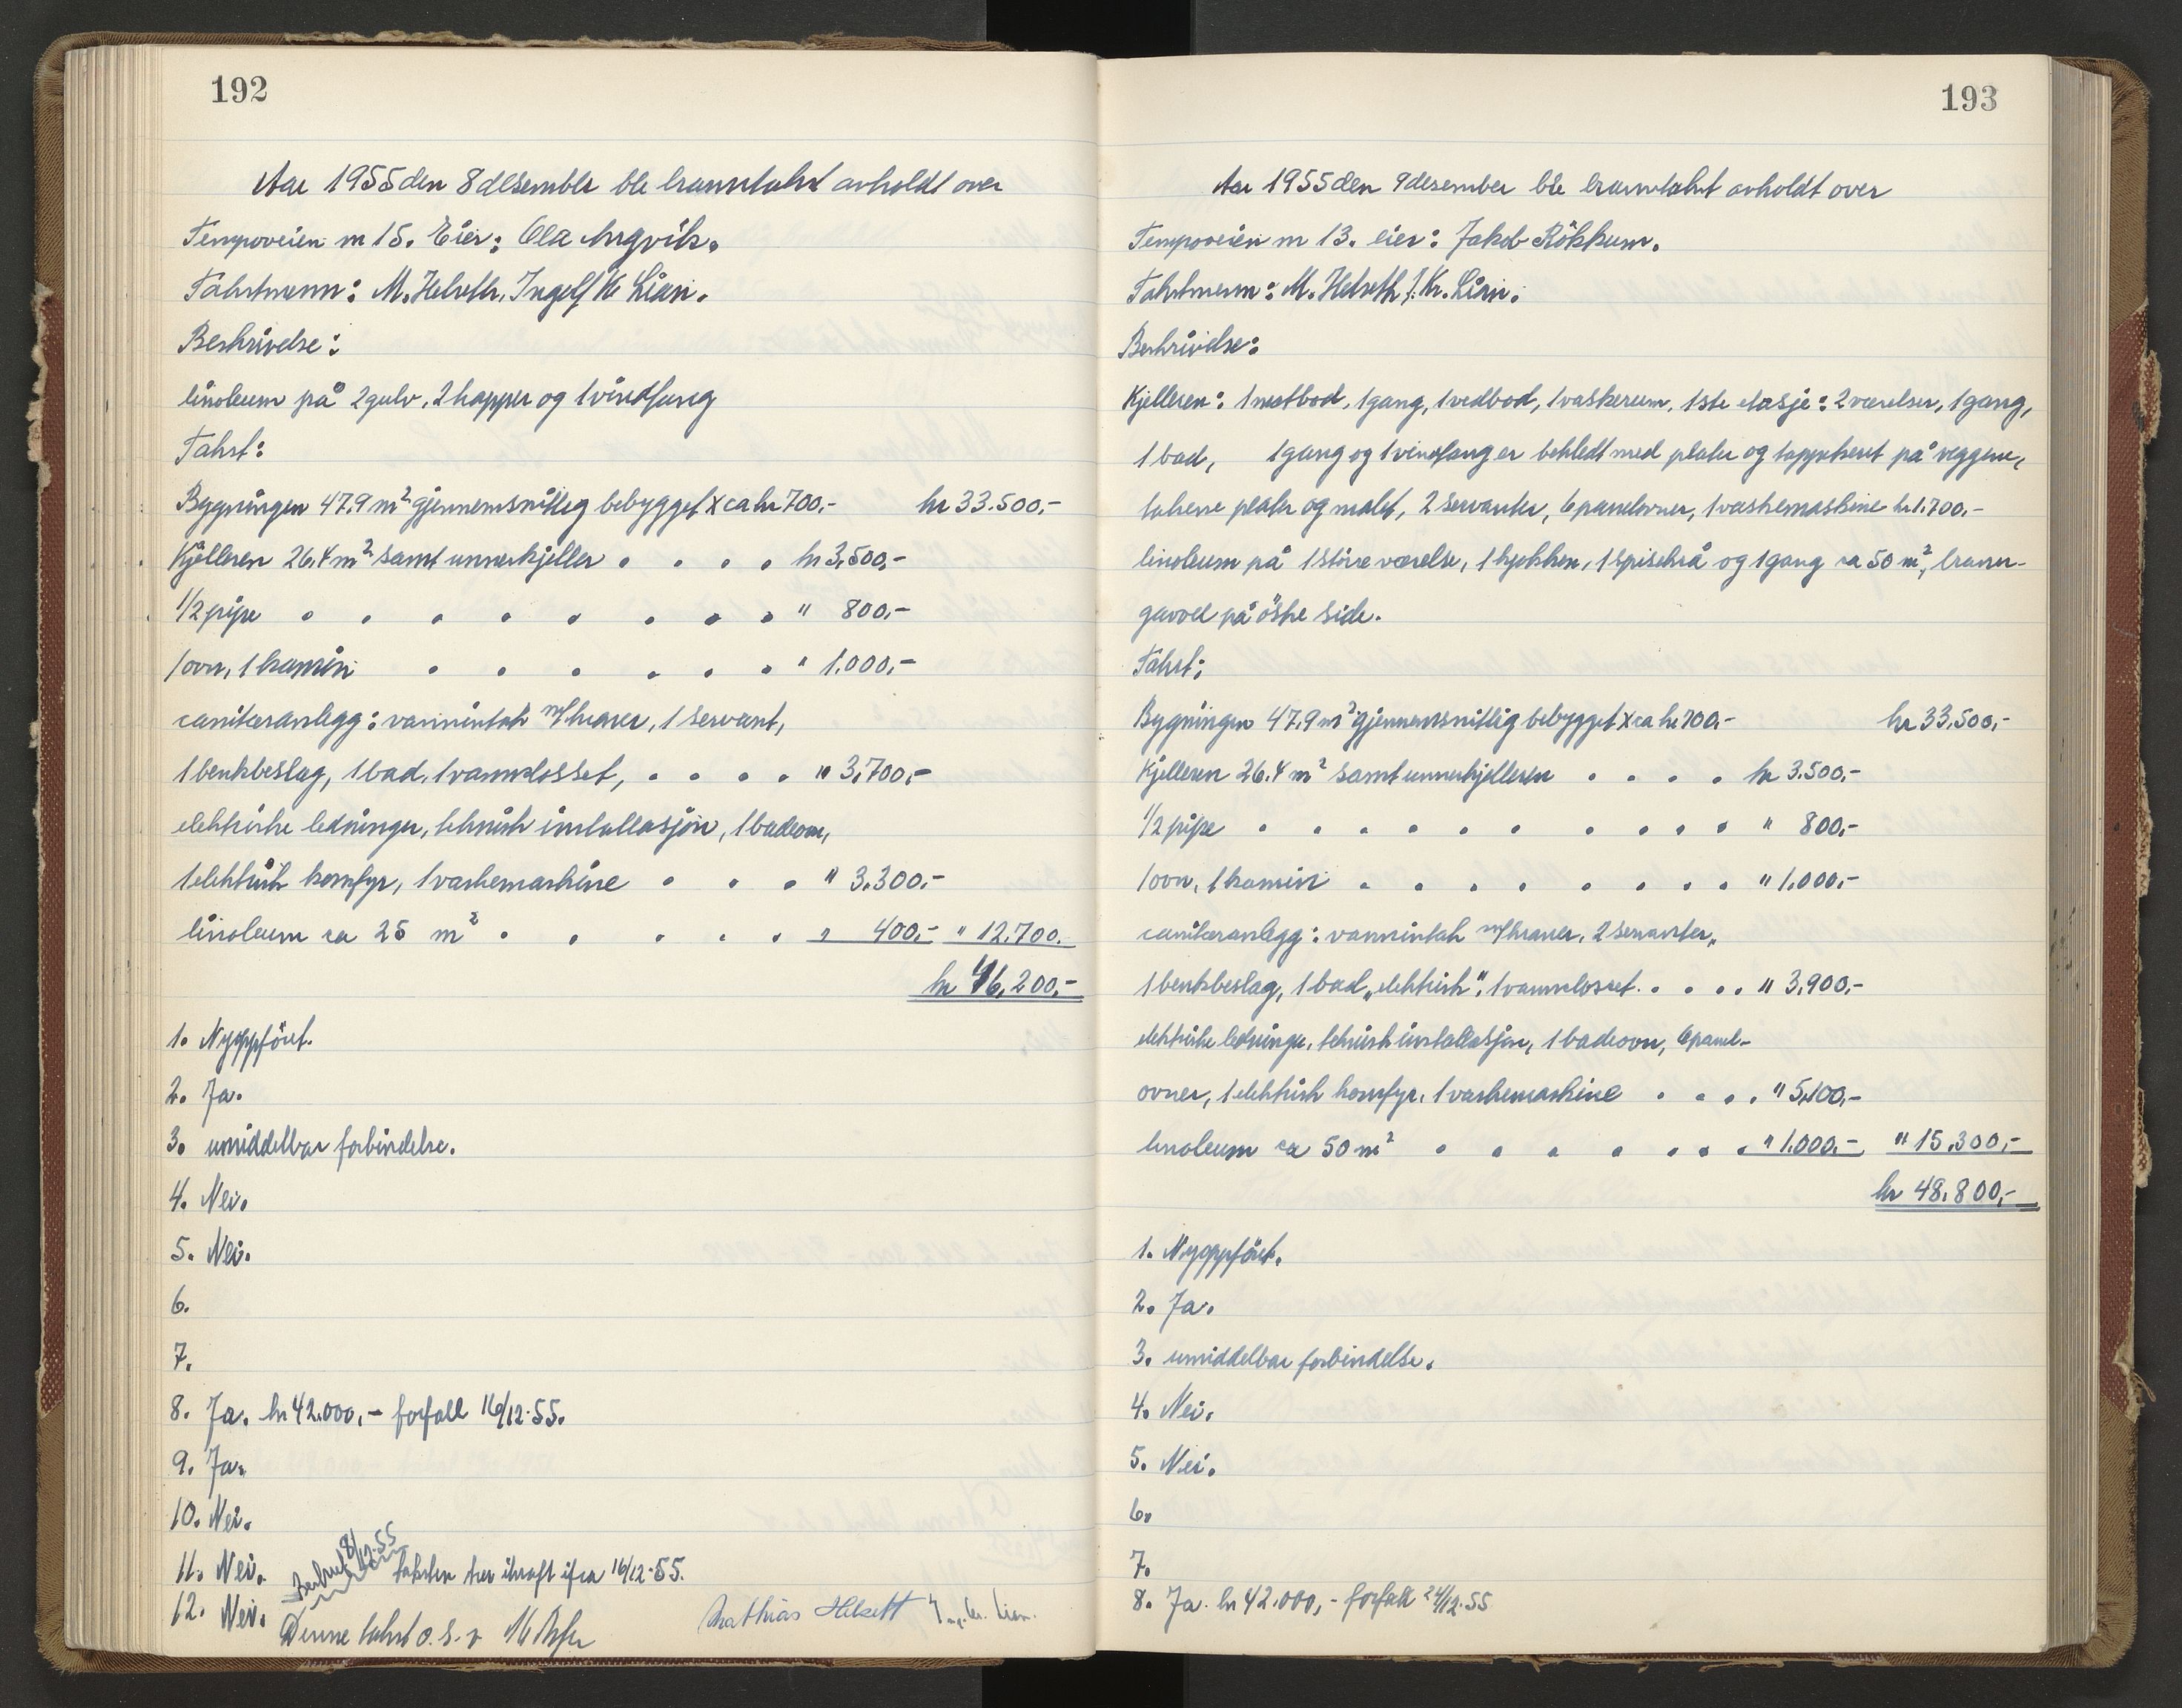 192
Aar 1955 den 8 desember ble branntakst avholdt over
Tempoveien nr 15. Eier: Ola Angvik.
Takstmenn: M. Helseth, Ingolf Kr Lian.
Beskrivelse:
linoleum på 2 gulv, 2 trapper og 1 vindfang
Takst:
Bygningen 47.9 m² gjennemsnitlig bebygget x ca kr 700,- kr 33.500,-
Kjelleren 26.4 m² samt unnerkjeller . . . . kr 3,500,-
1/2 pipe . . . . . . . . " 800,-
1 ovn, 1 kamin . . . . . . " 1.000,-
sanitæranlegg: vanninntak m/kraner, 1 servant,
1 benkbeslag, 1 bad, 1 vannklosset, . . . . " 3,700,-
elektriske ledninger, teknisk installasjon, 1 badeovn,
1 elektrisk komfyr, 1 vaskemaskine . . . " 3.300,-
linoleum ca 25 m² . . . . . " 400,- " 12.700.
kr 46,200,-
1. Nyoppföret.
2. Ja.
3. umiddelbar forbindelse.
4. Nei.
5. Nei.
6.
7.
8. Ja. kr 42.000,- forfall 16/12-55.
9. Ja.
10. Nei.
11. Nei. 8/12-55 taksten trer ikraft ifra 16/12-55.
12. Nei. Denne takst o.s.v Mathias Helseth Ing. Kr. Lian.
193
Aar 1955 den 9 desember ble branntakst avholdt over
Tempoveien nr 13. eier: Jakob Rökkum.
Takstmenn: M. Helseth I. Kr. Lian.
Beskrivelse:
Kjelleren: 1 matbod, 1 gang, 1 vedbod, 1 vaskerum, 1ste etasje: 2 værelser, 1 gang,
1 bad, 1 gang og 1 vindfang er bekledt med plater og tappeteret på veggene,
takene plater og malet, 2 servanter, 6 panelovner, 1 vaskemaskine kr 1.700,-
linoleum på 1 större værelse, 1 kjøkken, 1 spisekrå og 1 gang ca 50 m², brann-
gavvel på östre side.
Takst:
Bygningen 47.9 m² gjennemsnittlig bebygget x ca kr 700,- kr 33,500,-
Kjelleren 26.4 m² samt unnerkjelleren . . . . kr 3.500,-
1/2 pipe . . . . . . . . . . . " 800,-
1 ovn, 1 kamin . . . . . . . . " 1.000,-
sanitæranlegg: vanninntak m/kraner, 2 servanter,
1 benkbeslag, 1 bad „elektrisk", 1 vannklosset. . . . . " 3,900,-
elektriske ledninger, teknisk installasjon, 1 badeovn, 6 panel-
ovner, 1 elektrisk komfyr, 1 vaskemaskine . . . . " 5,100,-
linoleum ca 50 m² . . . . . . . " 1.000,- " 15,300,-
kr 48.800,-
1. Nyoppföret.
2. Ja.
3. umiddelbar forbindelse.
4. Nei.
5. Nei.
6.
7.
8. Ja. kr 42.000,- forfall 24/12-55